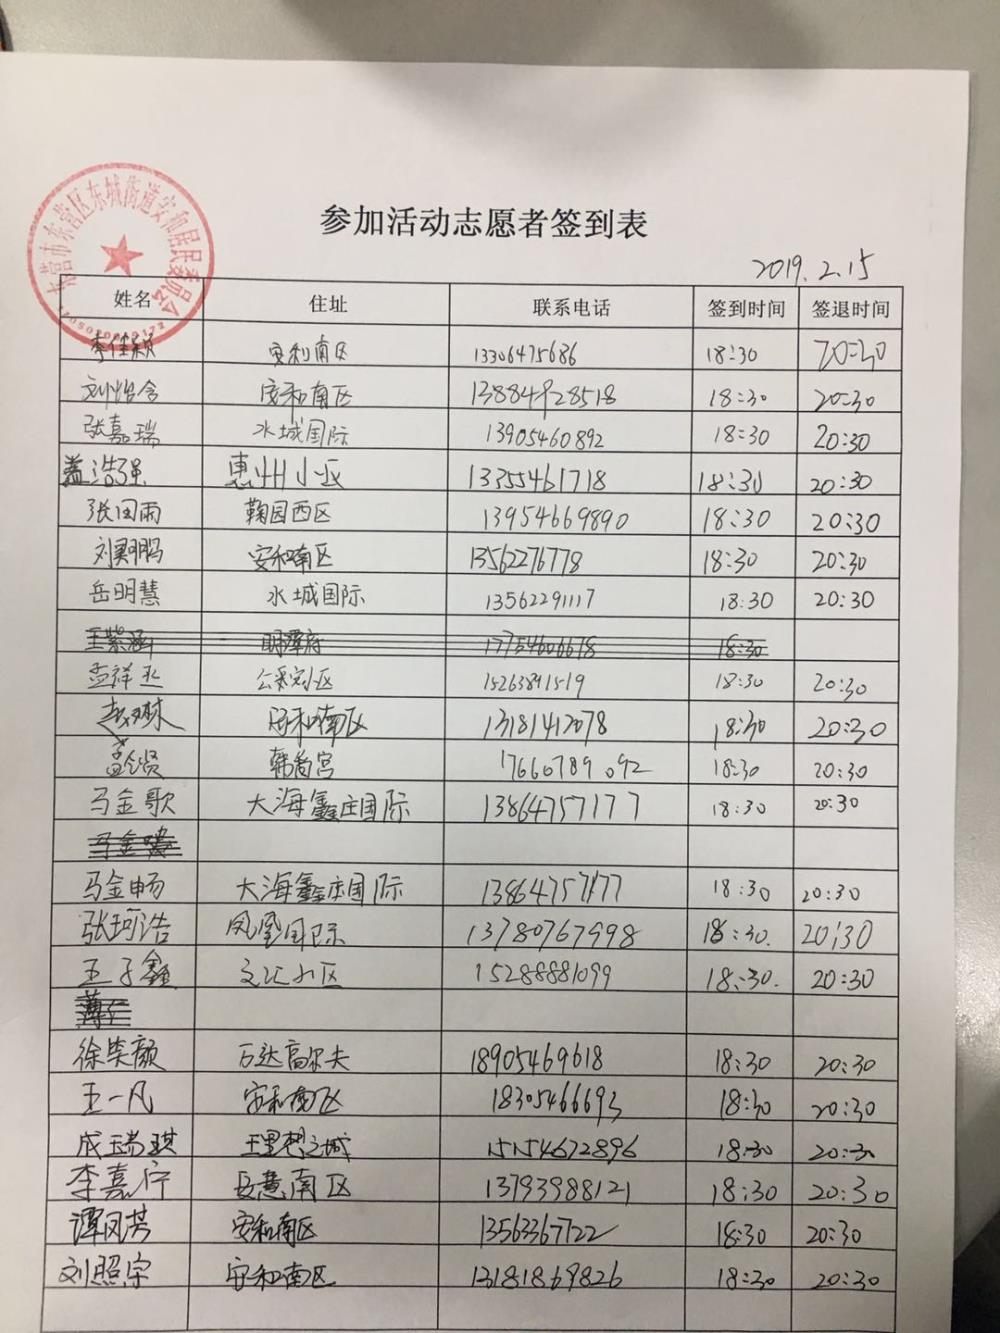 东营市东营区东城街道安和居民委员会
参加活动志愿者签到表
2019.2.15
姓名 住址 联系电话 签到时间 签退时间
李佳颖 安和南区 13306475686 18:30 20:30
刘怡含 安和南区 13884928518 18:30 20:30
张嘉瑞 水城国际 13905460892 18:30 20:30
盖浩强 惠州小区 13355461718 18:30 20:30
张国雨 鞠园西区 13954669890 18:30 20:30
刘鹏 安和南区 13562276778 18:30 20:30
岳明慧 水城国际 13562291117 18:30 20:30
王紫涵 明潭府 17754606678 18:30
孟祥玉 小区 15263891519 18:30 20:30
赵琳 安和南区 13181412078 18:30 20:30
孟贤 韩尚宫 17660789092 18:30 20:30
马金歌 大海鑫庄国际 13864757177 18:30 20:30
马金
马金畅 大海鑫庄国际 13864757177 18:30 20:30
张珂浩 凤凰国际 13780767998 18:30. 20:30
王子鑫 文汇小区 15288881099 18:30. 20:30
薄仁
徐奕颜 万达高尔夫 18905469618 18:30 20:30
王一凡 安和南区 18305466693 18:30 20:30
成瑞琪 理想之城 15154672896 18:30 20:30
李嘉宁 长慧南区 13793988121 18:30 20:30
谭凤芳 安和南区 13563367722 18:30 20:30
刘照宇 安和南区 13181869826 18:30 20:30